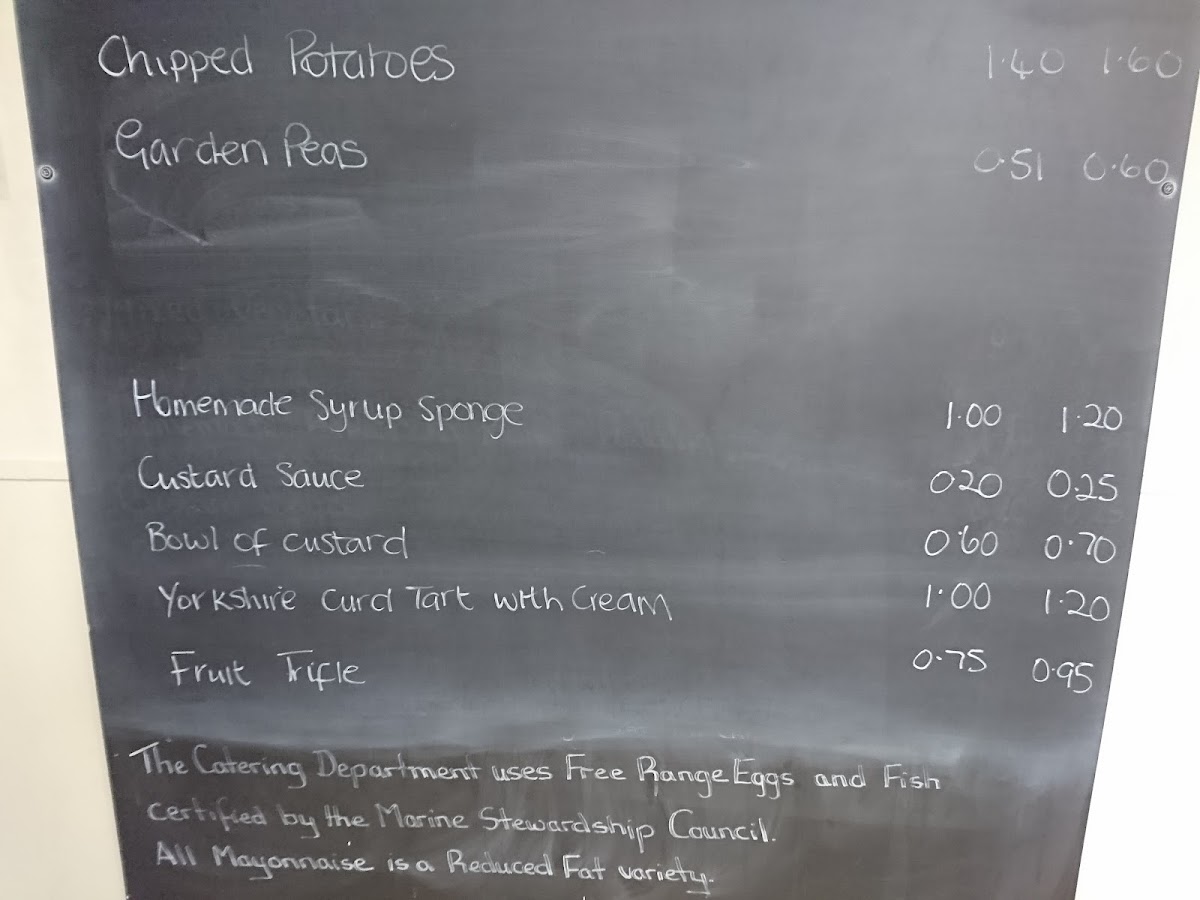 Chipped Potatoes 1.40 1.60
Garden Peas 0.51 0.60
Homemade Syrup Sponge 1.00 1.20
Custard Sauce 0.20 0.25
Bowl of custard 0.60 0.70
Yorkshire Curd Tart with Cream 1.00 1.20
Fruit Trifle 0.75 0.95
The Catering Department uses Free Range Eggs and Fish
certified by the Marine Stewardship Council.
All Mayonnaise is a Reduced Fat variety.